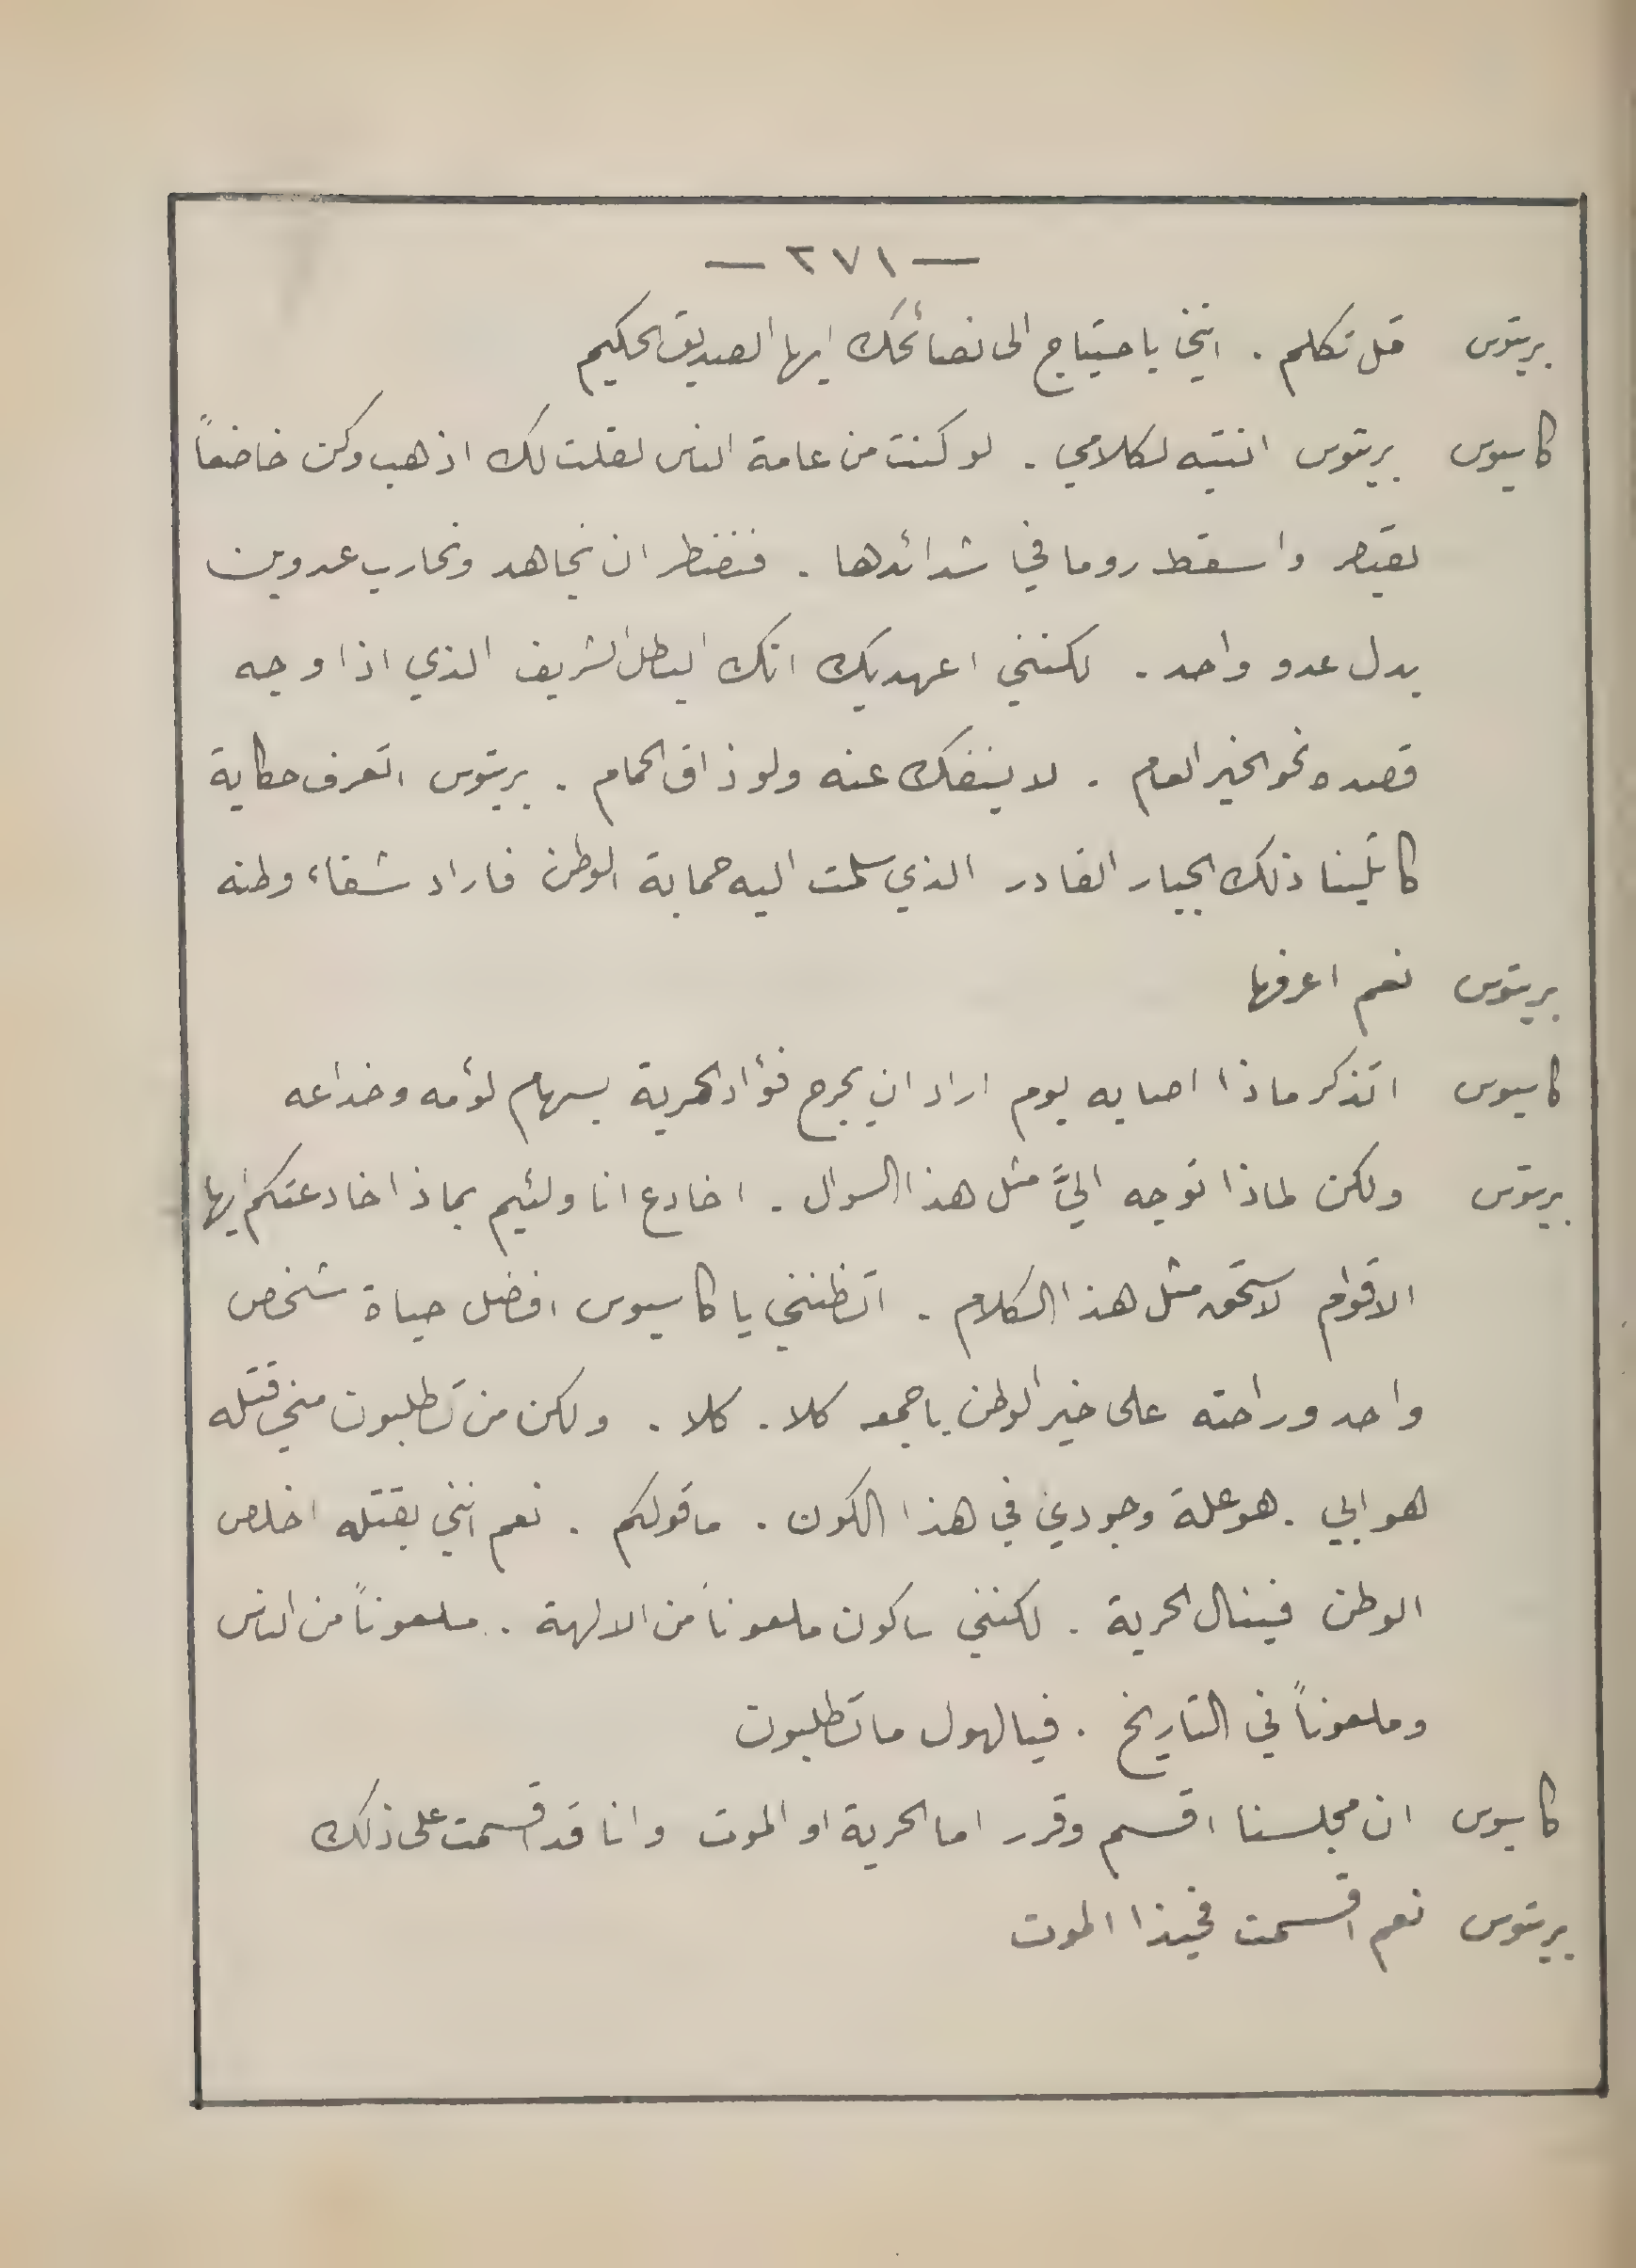 — ٢٧١ —
بريتوس قل تكلم . انني باحتياج الى نصائحك ايها الصديق الحكيم
كاسيوس بريتوس انتبه لكلامي . لو كنت من عامة الناس لقلت لك اذهب وكن خاضعاً
لقيصر واسقط روما في شدائدها . فنضطر ان نجاهد ونحارب عدوين
بدل عدو واحد . لكنني اعهد بك انك البطل الشريف الذي اذا وجه
قصده نحو الخير العام . لا ينفك عنه ولو ذاق الحمام . بريتوس اتعرف حكاية
كاتلينا ذلك الجبار الغادر الذي سلمت اليه حماية الوطن فاراد شقاء وطنه
بريتوس نعم اعرفها
كاسيوس اتذكر ماذا اصابه يوم اراد ان يجرح فؤاد الحرية بسهام لؤمه وخداعه
بريتوس ولكن لماذا توجه اليَّ مثل هذا السوال . اخادع انا ولئيم بماذا خادعتكم ايها
الاقوام لاستحق مثل هذا الكلام . اتظنني يا كاسيوس افضل حياة شخص
واحد وراحته على خير الوطن باجمعه كلا . كلا . ولكن من تطلبون مني قتله
هو ابي . هو علة وجودي في هذا الكون . ما قولكم . نعم انني بقتله اخلص
الوطن فينال الحرية . لكنني ساكون ملعوناً من الالهة . ملعوناً من الناس
وملعوناً في التاريخ . فيا لهول ما تطلبون
كاسيوس ان مجلسنا اقسم وقرر اما الحرية او الموت وانا قد اقسمت على ذلك
بريتوس نعم اقسمت فحبذا الموت